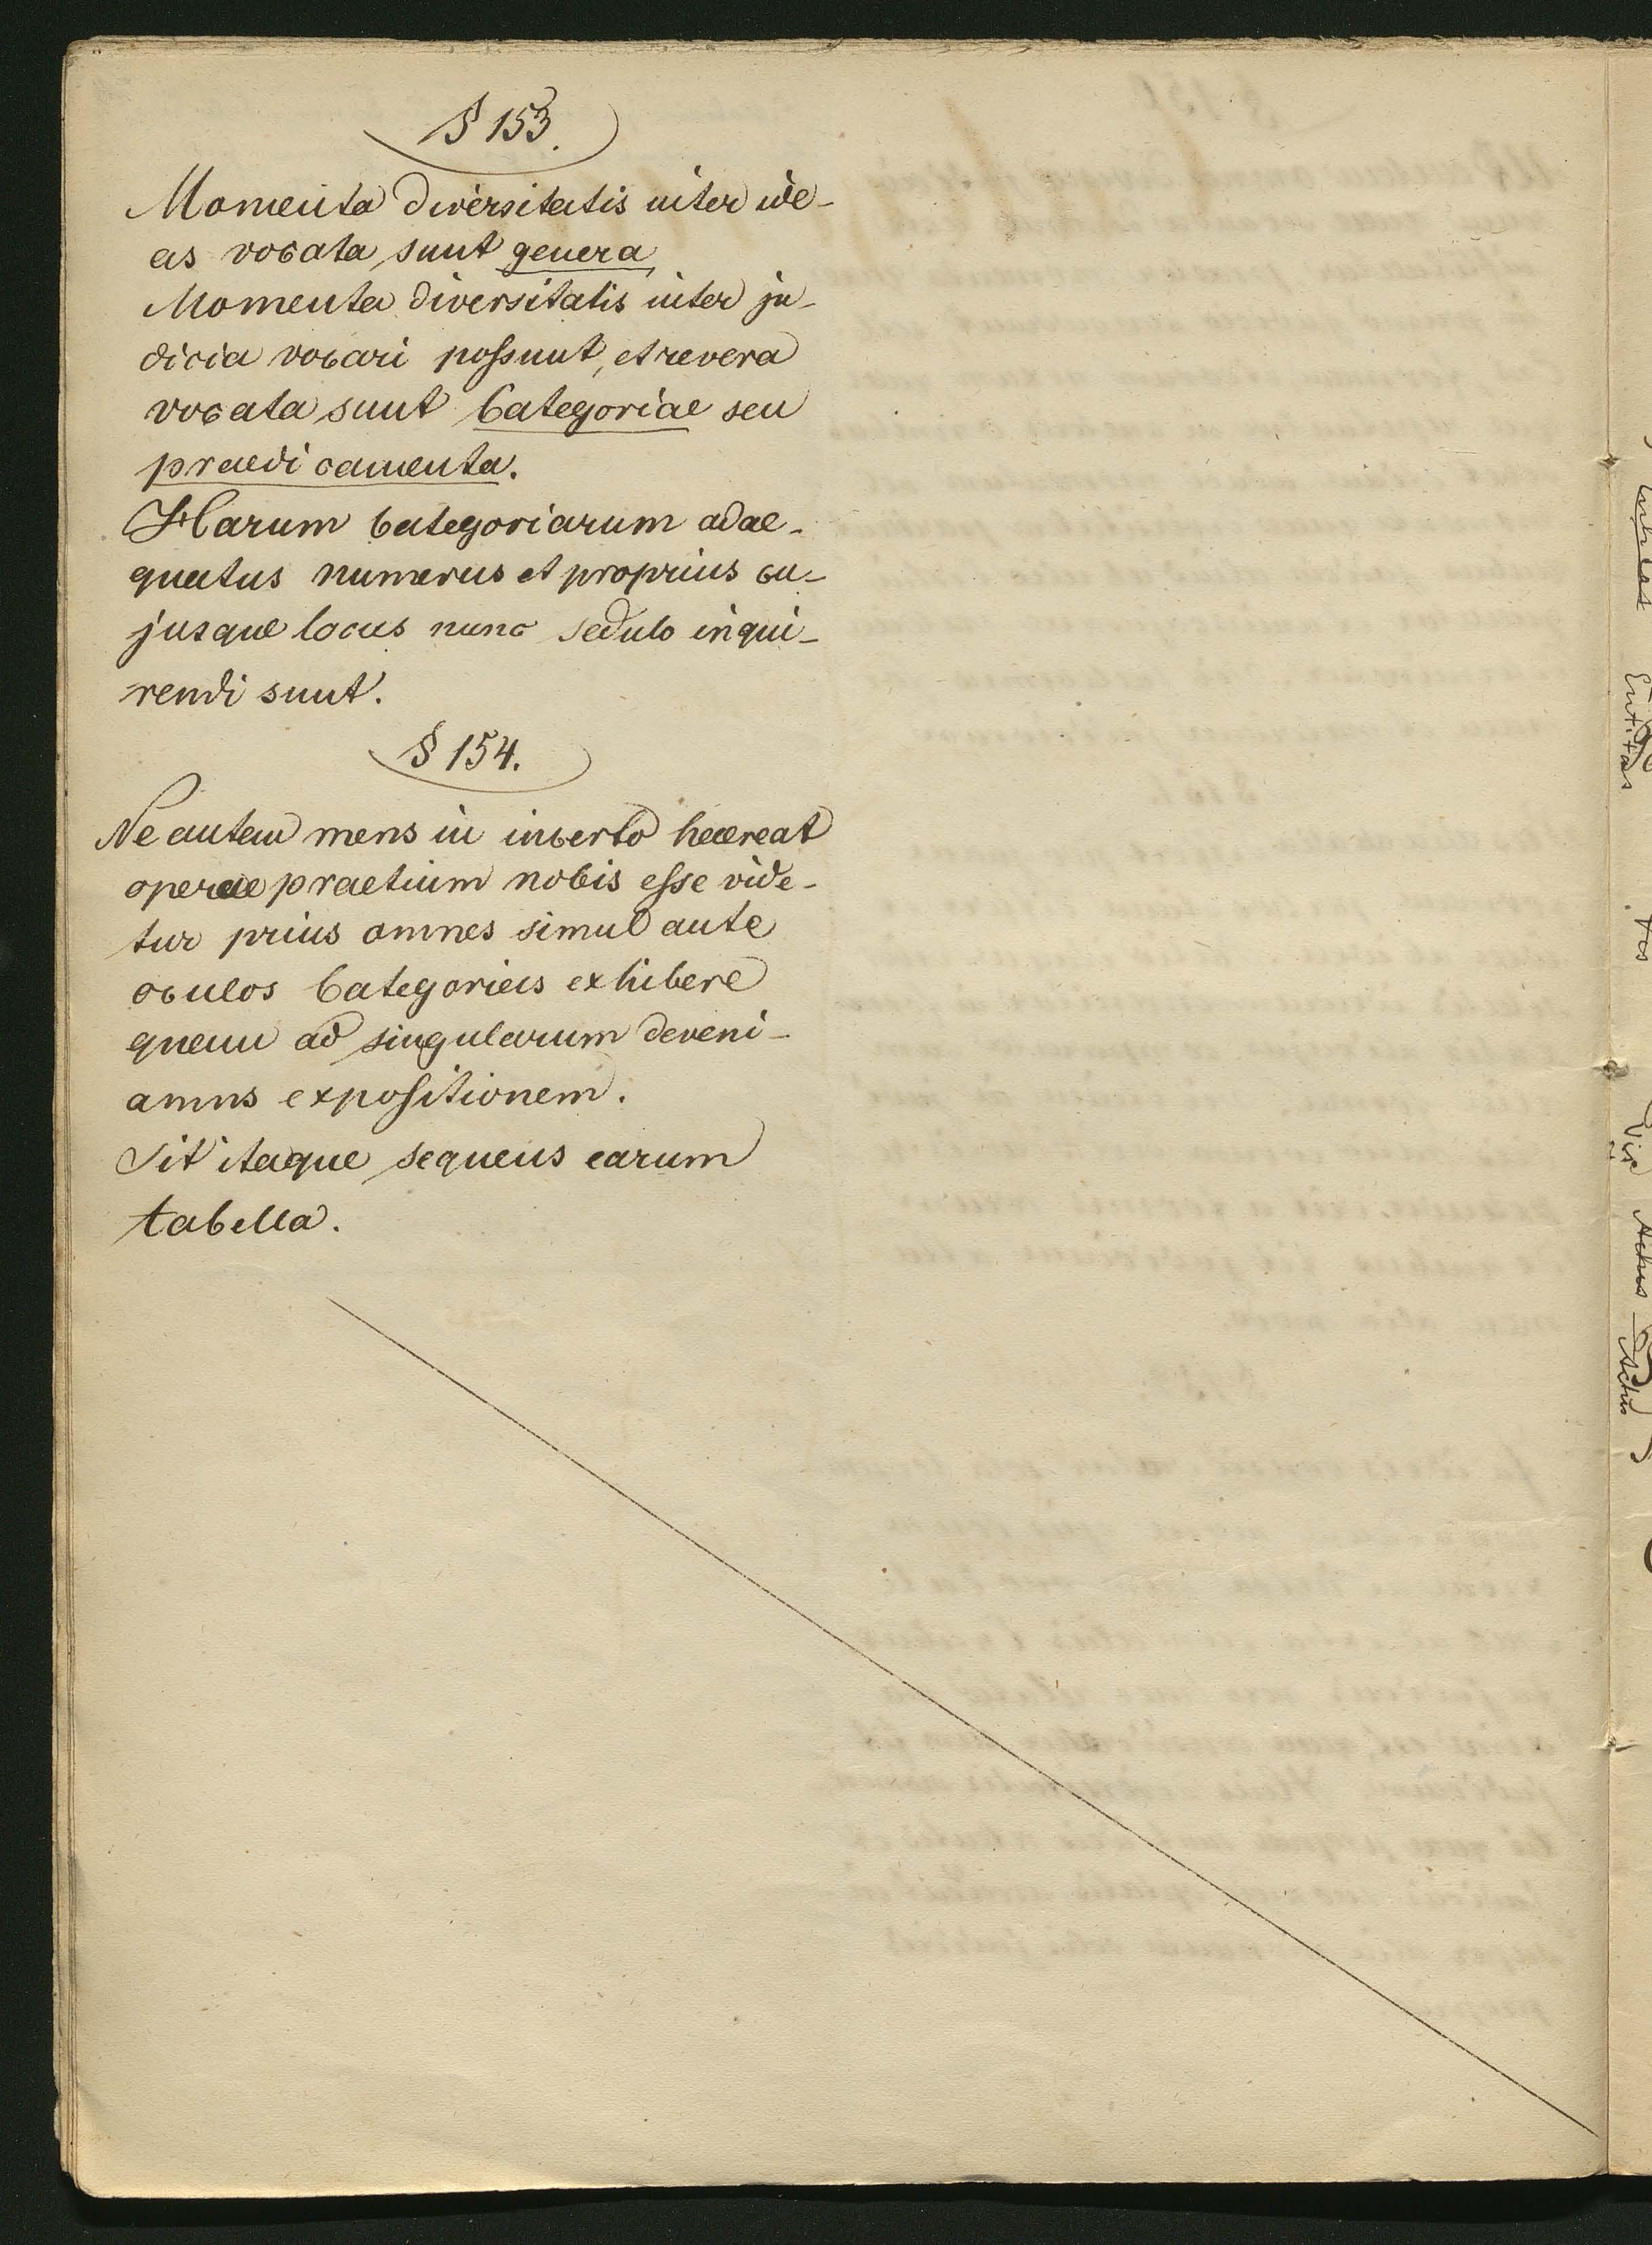 § 153.
Momenta diversitatis inter ide-
as vocata sunt genera,
Momenta diversitatis inter ju-
dicia vocari possunt, et revera
vocata sunt Categoriae seu
praedicamenta.
Harum Categoriarum adae-
quatus numerus et proprius cu-
jusque locus nunc sedulo inqui-
rendi sunt.
§ 154.
Ne autem mens in incerto haereat
operae praetium nobis esse vide-
tur prius omnes simul ante
oculos Categorias exhibere
quam ad singularum deveni-
amus expositionem.
Sit itaque sequens earum
tabella.
Entitas
tas
Vis
Actus
Actus